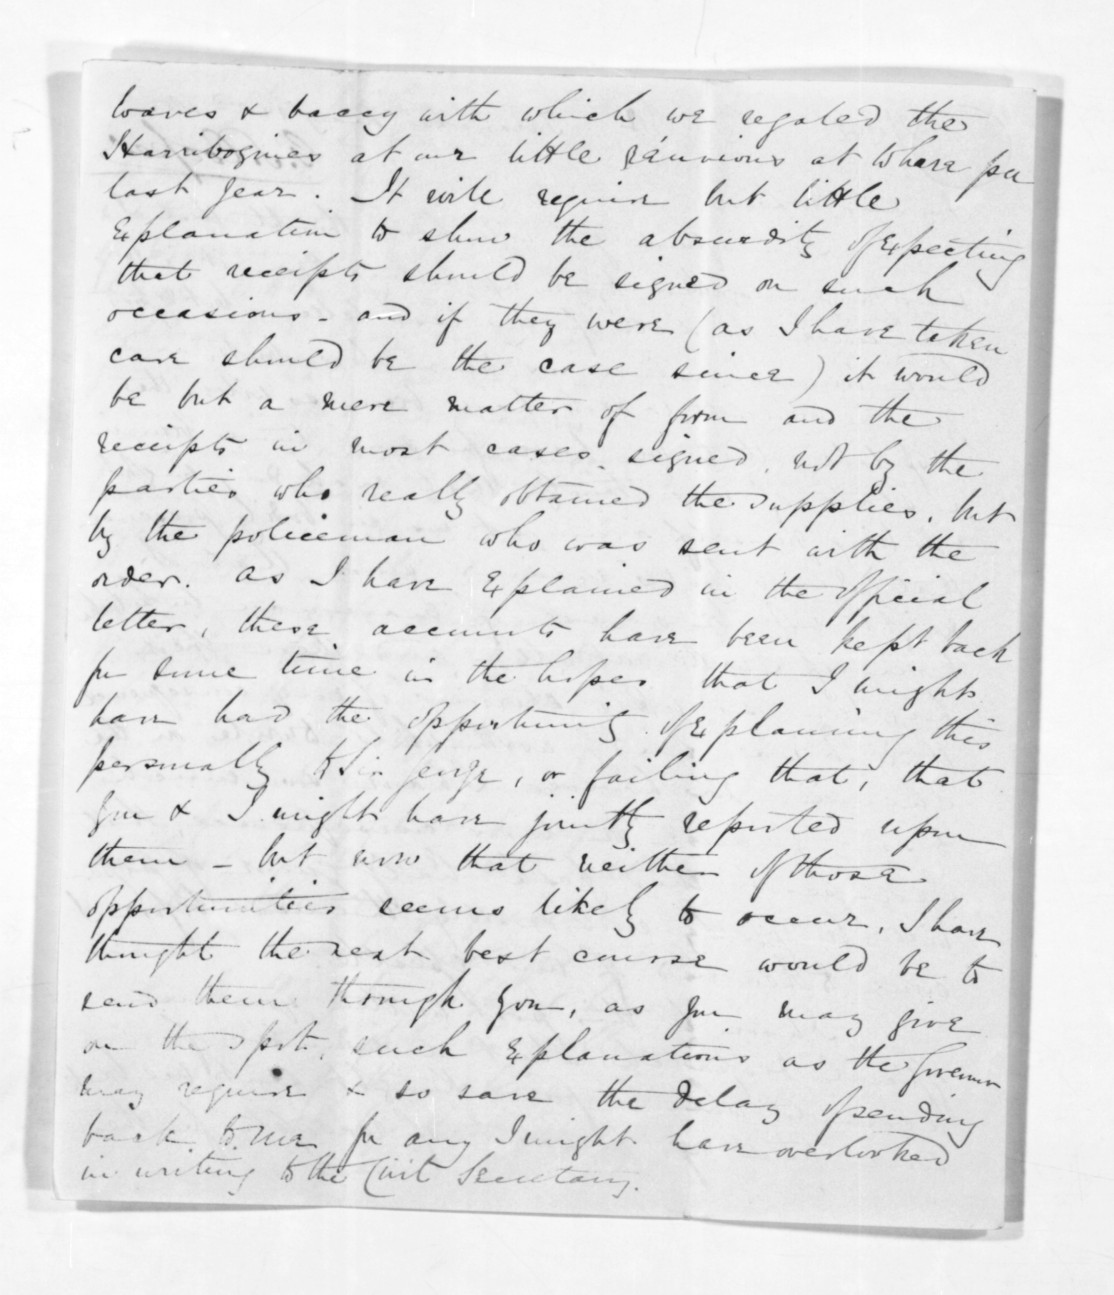 loaves & baccy with which we regaled the
at our little réunions at Whare pu
last year. It will require but little
Explanation to show the absurdity of Expecting
that receipts should be signed on such
occasions - and if they were (as I have taken
care should be the case since) it would
be but a mere matter of form and the
receipts in most cases signed, not by the
parties who really obtained the supplies, but
by the policeman who was sent with the
order. As I have Explained in the Official
letter, these accounts have been kept back
for some time in the hopes that I might
have had the opportunity of Explaining this
personally to Sir George, or failing that, that
you & I might have jointly reported upon
them - but now that neither of those
opportunities seems likely to occur, I have
thought the next best course would be to
send them through you, as you may give
on the spot, such Explanations as the Governor
may require & so save the delay of sending
back to me for any I might have overlooked
in writing to the Civil Secretary.